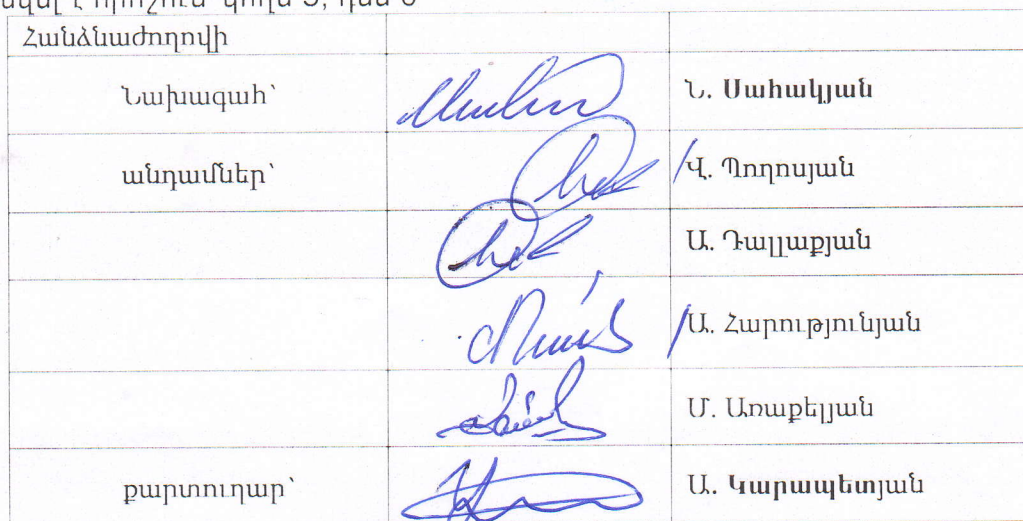 Հանձնաժողովի
Նախագահ՝ Ն. Սահակյան
անդամներ՝ Վ. Պողոսյան
Ա. Դալլաքյան
Ա. Հարությունյան
Մ. Առաքելյան
քարտուղար՝ Ա. Կարապետյան